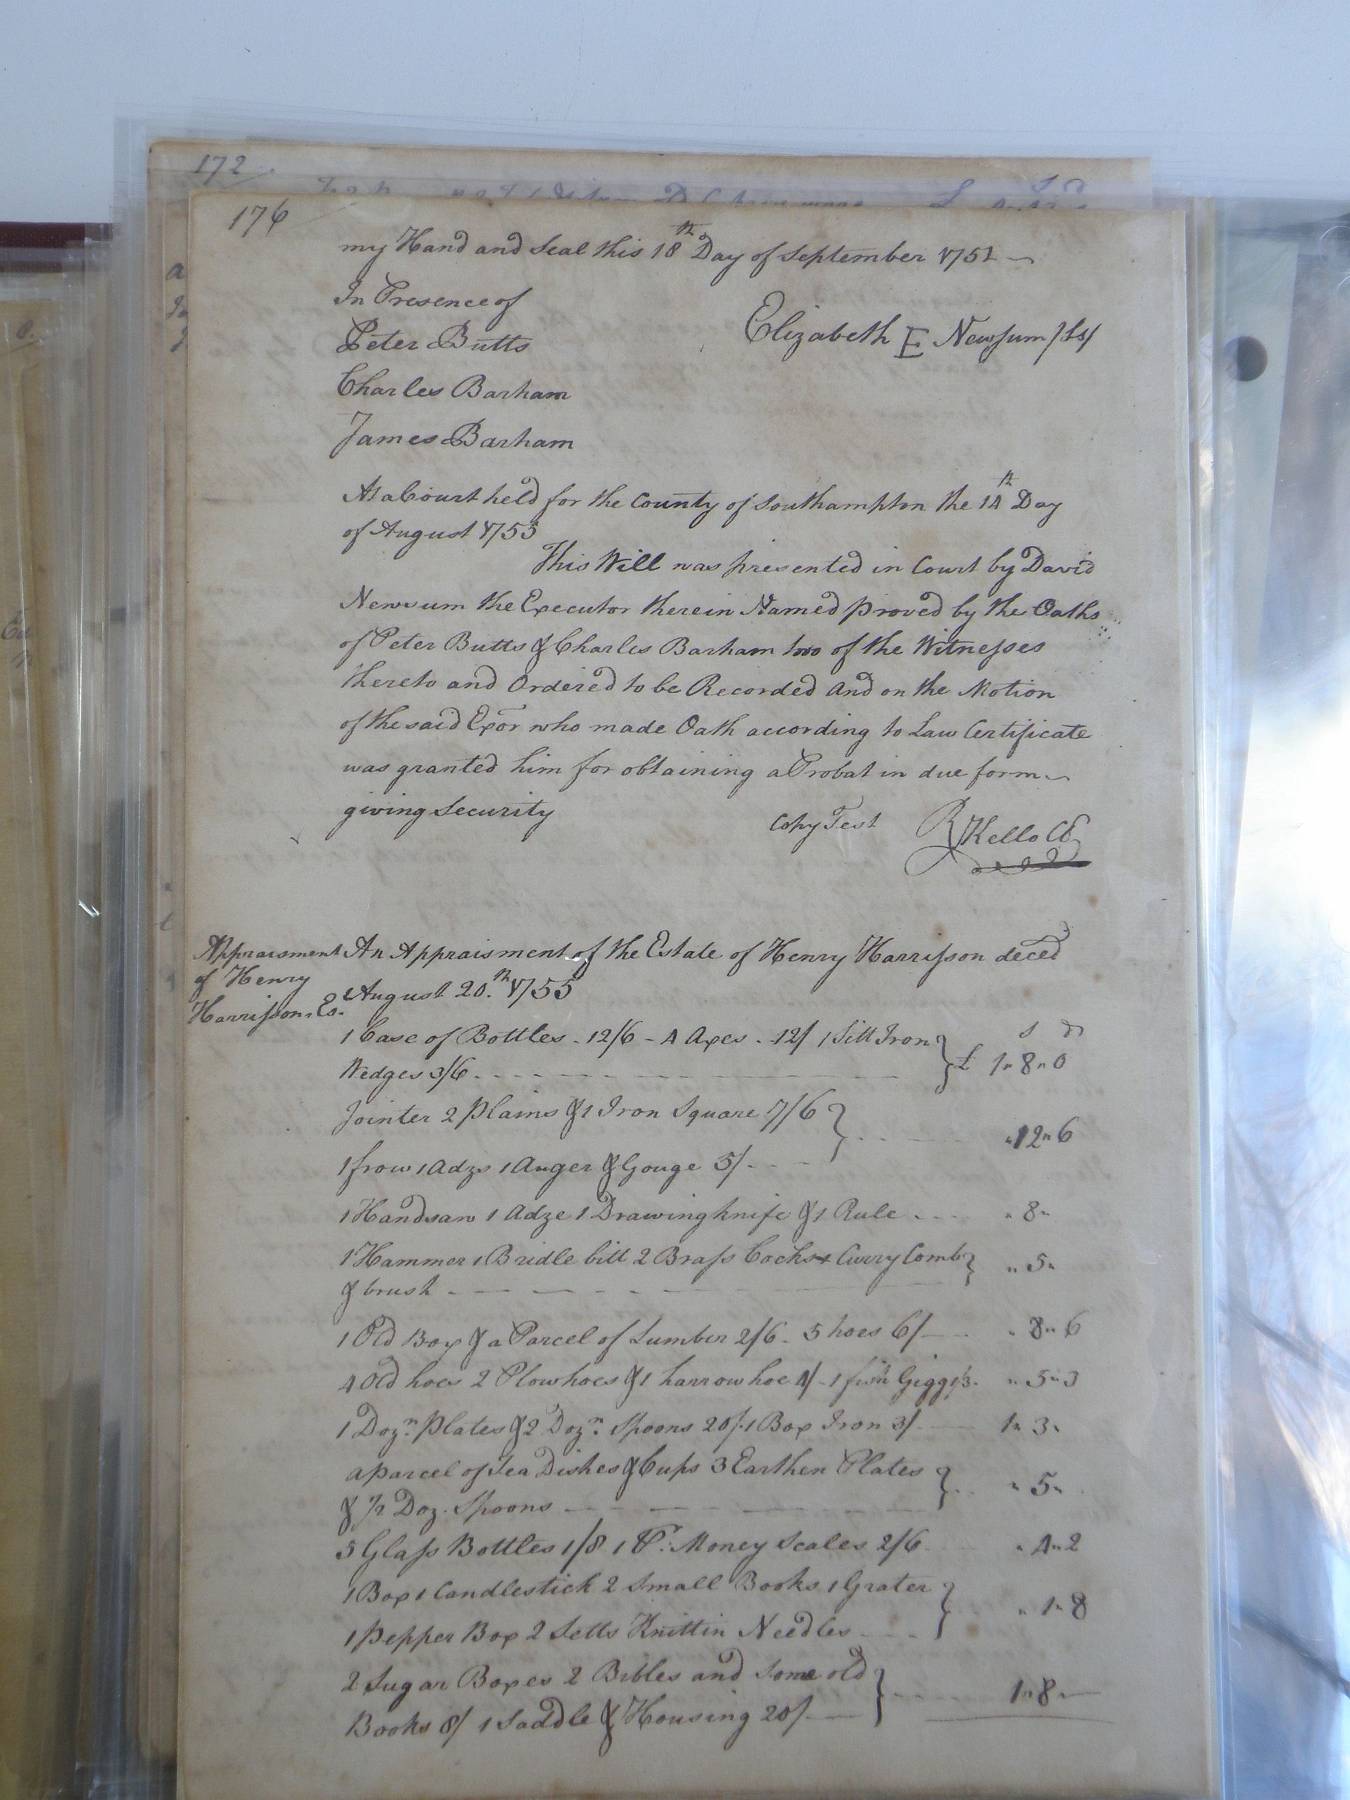 172
176
my Hand and Seal this 18th Day of September 1751
In Presence of
Elizabeth E Newsum /Ls/
Peter Butts
Charles Barham
James Barham
At a Court held for the County of Southampton the 14th Day
of August 1755
This Will was presented in Court by David
Newsum the Executor therein Named proved by the Oaths
of Peter Butts & Charles Barham two of the Witnesses
thereto and Ordered to be Recorded And on the Motion
of the said Exor who made Oath according to Law Certificate
was granted him for obtaining a Probat in due form
giving Security
Copy Test R Kello Cl
Appraisment of Henry Harrisson Es.
An Appraisment of the Estate of Henry Harrisson deced
August 20.th 1755
s d
1 Case of Bottles - 12/6 - 4 Axes - 12/ 1 Sett Iron
Wedges 3/6 £ 1 " 8 " 0
Jointer 2 plains & 1 Iron Square 7/6
" 12 " 6
1 frow 1 Adze 1 Auger & Gouge 5/
1 Handsaw 1 Adze 1 Drawing knife & 1 Rule " 8 "
1 Hammer 1 Bridle bitt 2 Brass Cocks + Curry Comb
& brush " 5 "
1 Old Box & a Parcel of Lumber 2/6 - 5 hoes 6/ " 8 " 6
4 Old hoes 2 Plow hoes & 1 harrow hoe 4/ - 1 fish Gigg 1/3 " 5 " 3
1 Dozn plates & 2 Dozn Spoons 20/. 1 Box Iron 3/ 1 " 3 "
a parcel of Tea Dishes & Cups 3 Earthen Plates
& 1/2 Doz. Spoons " 5 "
5 Glass Bottles 1/8 1 pr. Money Scales 2/6 " 4 " 2
1 Box 1 Candlestick 2 Small Books 1 Grater
1 Pepper Box 2 Setts Knittin Needles " 1 " 8
2 Sugar Boxes 2 Bibles and Some old
Books 8/ 1 Saddle & Housing 20/ 1 " 8 "